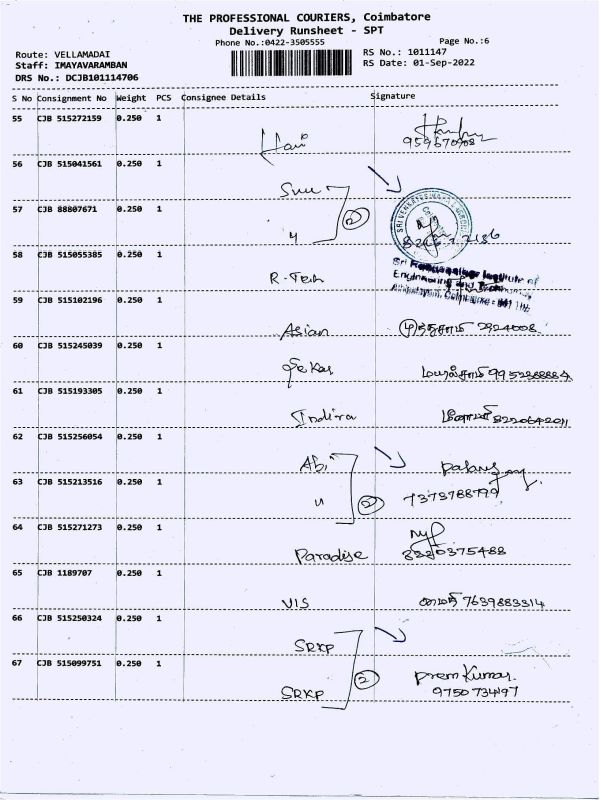 THE PROFESSIONAL COURIERS, Coimbatore
Delivery Runsheet - SPT
Phone No.:0422-3505555
Page No.:6
Route: VELLAMADAI
RS No.: 1011147
Staff: IMAYAVARAMBAN
RS Date: 01-Sep-2022
DRS No.: DCJB101114706
S No Consignment No Weight PCS Consignee Details Signature
55 CJB 515272159 0.250 1 Hari
56 CJB 515041561 0.250 1
57 CJB 88807671 0.250 1 4 2
58 CJB 515055385 0.250 1 R-Tech
Sri Ranganathar Institute of
Engineering and Technology
Athipalayam, Coimbatore - 641 110
59 CJB 515102196 0.250 1 Asian
60 CJB 515245039 0.250 1 9952388884
61 CJB 515193305 0.250 1 Indira 8220642011
62 CJB 515256054 0.250 1 Abi
63 CJB 515213516 0.250 1 2 7373788799
64 CJB 515271273 0.250 1 Paradise 3380375488
65 CJB 1189707 0.250 1 VIS 7639883314
66 CJB 515250324 0.250 1 SRKP
67 CJB 515099751 0.250 1 SRKP 2 Prem Kumar.
9750734197